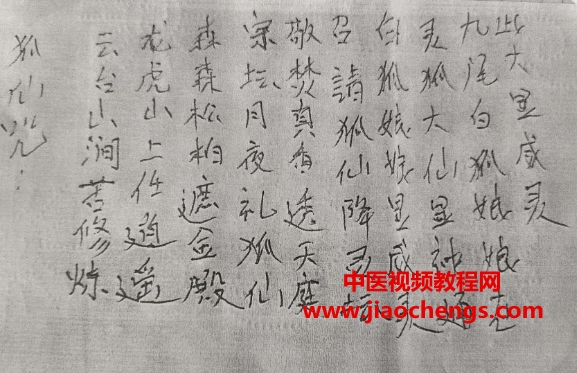 狐仙咒：
云台山涧苦修炼
龙虎山上任逍遥
森森松柏遮金殿
宗坛月夜礼狐仙
敬焚真香透天庭
召請狐仙降灵坛
白狐娘娘显威灵
灵狐大仙显神通
九尾白狐娘娘
此大显威灵
中医视频教程网
www.jiaochengs.com